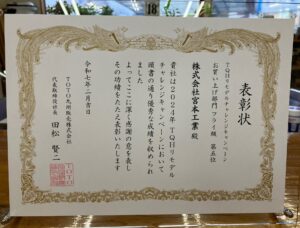 表彰状
TQHリモデルチャレンジキャンペーン
お買い上げ部門 フライ級 第五位
株式会社宮本工業 殿
貴社は2024年TQHリモデル
チャレンジキャンペーンにおいて
頭書の通り優秀な成績を収められ
ました
よってここに深く感謝の意を表し
その功績をたたえ表彰いたします
令和七年二月吉日
TOTO九州販売株式会社
代表取締役社長 田松 賢二